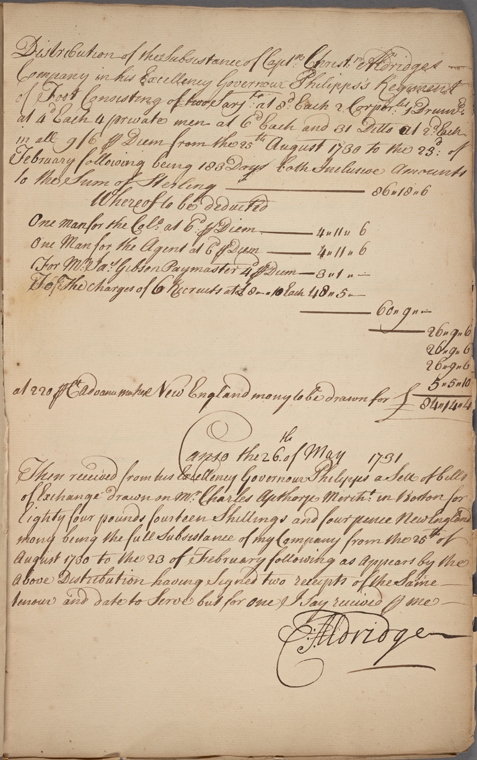 Distribution of the Subsistance of Capt.n Christ.r Aldridges
Company in his Excellency Governour Philipps's Regiment
of Foot Consisting of two Sarj.ts at 8.d Each 2 Corpor.ls 1 Drum.r
at 4.d Each 4 private men at 6.d Each and 31 Ditto at 2.d Each
in all 9/6 ⅌ Diem from the 25.th August 1730 to the 23.d of
February following being 183 Days both Inclusive Amounts
to the Sum of Sterling —— 86 " 18 " 6
Whereof to be deducted
One man for the Col.o at 6.d ⅌ Diem — 4 " 11 " 6
One Man for the Agent at 6.d ⅌ Diem — 4 " 11 " 6
For M.r Gibson Paymaster 4.d ⅌ Diem — 3 " 1 " —
To The charges of 6 Recruits at £8 " — " 10 Each 48 " 5 " —
—— 60 " 9 " —
—— 26 " 9 " 6
26 " 9 " 6
26 " 9 " 6
5 " 5 " 10
at 220 ⅌ C.t New England mony to be drawn for £ 84 " 14 " 4
Canso the 26.th of May 1731
Then received from his Excellency Governour Philipps a Sett of bills
of Exchange drawn on M.r Charles Apthorp Merch.t in Boston for
Eighty four pounds fourteen Shillings and four pence New England
mony being the full Subsistance of my Company from the 25.th of
August 1730 to the 23 of February following as Appears by the
Above Distribution having Signed two receipts of the Same
tenour and date to Serve but for one I Say received ⅌ me —
C: Aldridge